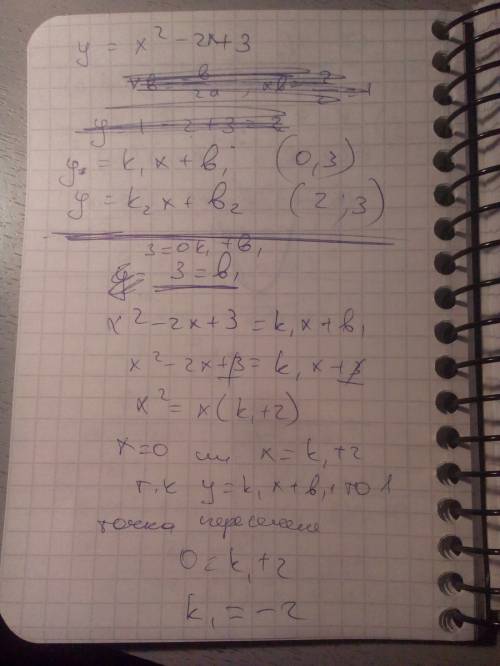 y = x² - 2x + 3
y = 1 - 2 + 3 = 2
y = k₁x + b₁ (0,3)
y = k₂x + b₂ (2;3)
3 = 0k₁ + b₁
3 = b₁
x² - 2x + 3 = k₁x + b₁
x² - 2x + 3 = k₁x + 3
x² = x(k₁ + 2)
x = 0 или x = k₁ + 2
т.к y = k₁x + b₁, то 1
точка пересечения
0 = k₁ + 2
k₁ = -2